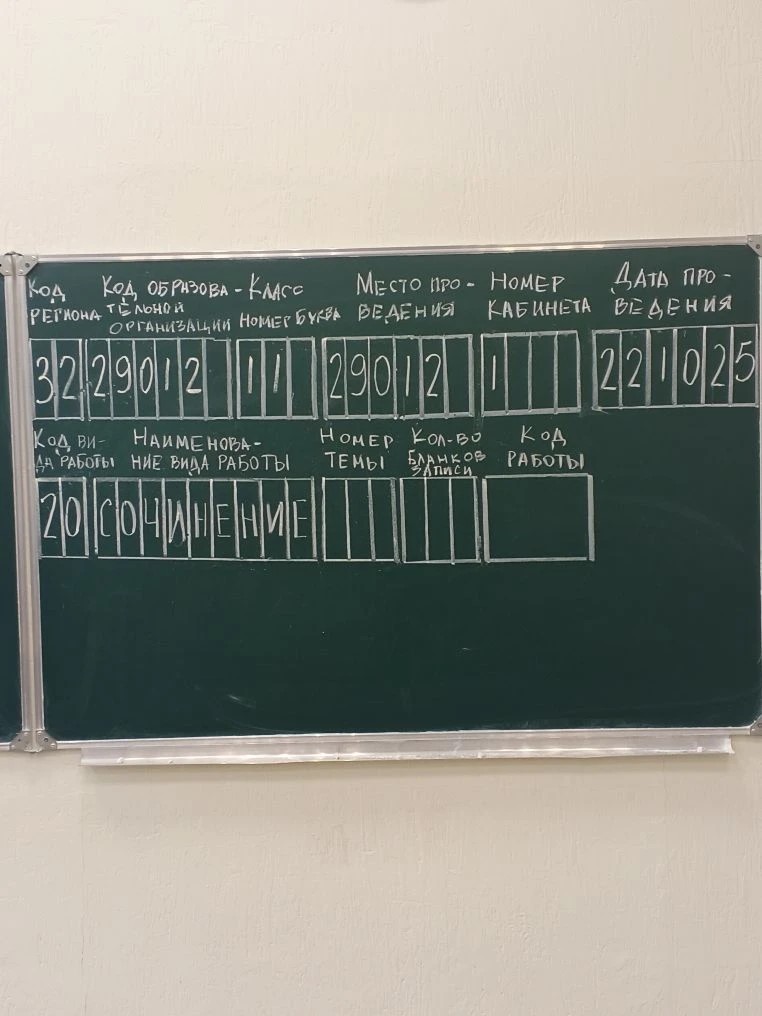 Код КОД ОБРАЗОВА- КЛАСС МЕСТО ПРО- НОМЕР ДАТА ПРО-
РЕГИОНА ТЕЛЬНОЙ ОРГАНИЗАЦИИ НОМЕР БУКВА ВЕДЕНИЯ КАБИНЕТА ВЕДЕНИЯ
32 29012 11 29012 1 221025
КОД ВИ- НАИМЕНОВА- НОМЕР КОЛ-ВО КОД
ДА РАБОТЫ НИЕ ВИДА РАБОТЫ ТЕМЫ БЛАНКОВ ЗАПИСИ РАБОТЫ
20 СОЧИНЕНИЕ